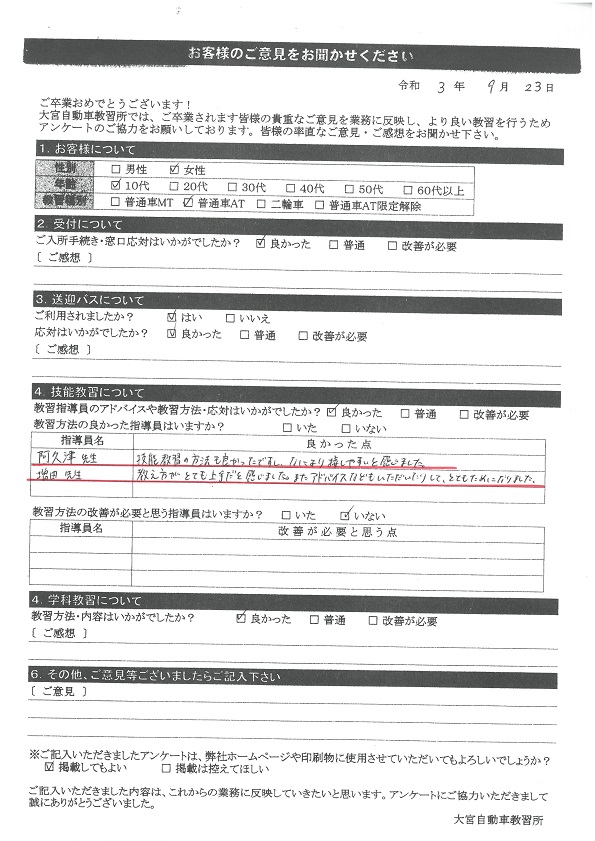 お客様のご意見をお聞かせください
令和 3 年 9 月 23 日
ご卒業おめでとうございます！
大宮自動車教習所では、ご卒業されます皆様の貴重なご意見を業務に反映し、より良い教習を行うため
アンケートのご協力をお願いしております。皆様の率直なご意見・ご感想をお聞かせ下さい。
1. お客様について
性別 □ 男性 ☑ 女性
年齢 ☑ 10代 □ 20代 □ 30代 □ 40代 □ 50代 □ 60代以上
教習種別 □ 普通車MT ☑ 普通車AT □ 二輪車 □ 普通車AT限定解除
2. 受付について
ご入所手続き・窓口応対はいかがでしたか？ ☑ 良かった □ 普通 □ 改善が必要
〔 ご感想 〕
3. 送迎バスについて
ご利用されましたか？ ☑ はい □ いいえ
応対はいかがでしたか？ ☑ 良かった □ 普通 □ 改善が必要
〔 ご感想 〕
4. 技能教習について
教習指導員のアドバイスや教習方法・応対はいかがでしたか？ ☑ 良かった □ 普通 □ 改善が必要
教習方法の良かった指導員はいますか？ □ いた □ いない
指導員名 良かった点
阿久津 先生 技能教習の方法も良かったですし、なにより接しやすいと感じました。
増田 先生 教え方がとても上手だと感じました。またアドバイスなどもいただいたりして、とてもためになりました。
教習方法の改善が必要と思う指導員はいますか？ □ いた ☑ いない
指導員名 改善が必要と思う点
4. 学科教習について
教習方法・内容はいかがでしたか？ ☑ 良かった □ 普通 □ 改善が必要
〔 ご感想 〕
6. その他、ご意見等ございましたらご記入下さい
〔 ご意見 〕
※ご記入いただきましたアンケートは、弊社ホームページや印刷物に使用させていただいてもよろしいでしょうか？
☑ 掲載してもよい □ 掲載は控えてほしい
ご記入いただきました内容は、これからの業務に反映していきたいと思います。アンケートにご協力いただきまして
誠にありがとうございました。
大宮自動車教習所